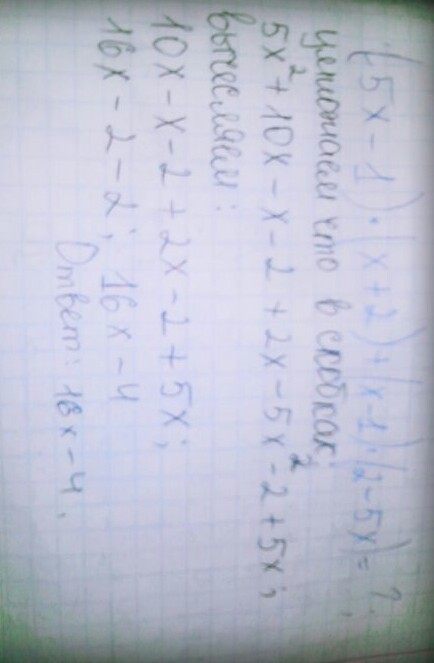 (5x-1)·(x+2)+(x-1)·(2-5x)=?
умножаем что в скобках:
5x²+10x-x-2+2x-5x²-2+5x;
вычесляем:
10x-x-2+2x-2+5x;
16x-2-2; 16x-4
Ответ: 16x-4.